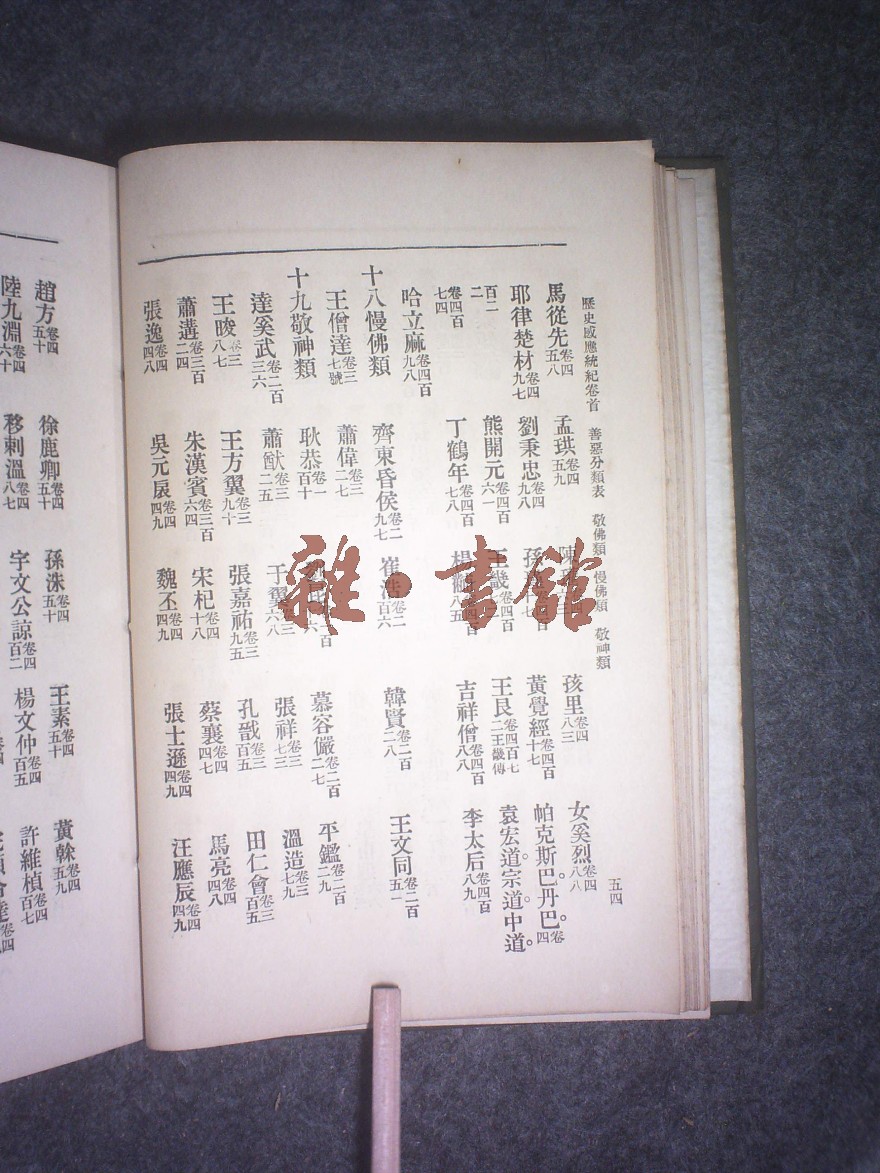 歷史感應統紀卷首 善惡分類表 敬佛類 慢佛類 敬神類 五四
馬從先卷四五八 孟珙卷四五九 孩里卷四八三 女奚烈卷四八八
耶律楚材卷四九七 劉秉忠卷四九八 黃覺經卷四百十七 帕克斯巴。丹巴。卷四
百二 熊開元卷四百六一 王畿卷四百 王艮卷四百七二王畿傳 袁宏道。宗道。中道。
卷四百七四 丁鶴年卷四百七八 吉祥僧卷四百八八 李太后卷四百八九
哈立麻卷四百九八
十八慢佛類
王僧達卷三七號 齊東昏侯卷二九七 崔浩卷二百六 韓賢卷二百二八 王文同卷二百五一
十九敬神類 蕭偉卷三二七
達奚武卷二百三六 耿恭卷一百十 慕容儼卷二百二七 平鑑卷二百二九
王晙卷三八七 蕭猷卷三二五 于翼卷三六八 張祥卷三七三 溫造卷三七九
蕭遘卷三百二四 王方翼卷三九十 張嘉祐卷三九五 孔戢卷三百五 田仁會卷三百五
張逸卷四四八 朱漢賓卷三百六四 宋杞卷四十八 蔡襄卷四四七 馬亮卷四四八
吳元扆卷四四九 魏丕卷四四九 張士遜卷四四九 汪應辰卷四四九
趙方卷四五十 徐鹿卿卷四五十 孫洙卷四五十 王素卷四五十 黃榦卷四五九
陸九淵卷四六十 移剌溫卷四八七 字文公諒卷四百二 楊文仲卷四百五 許維楨卷四百七